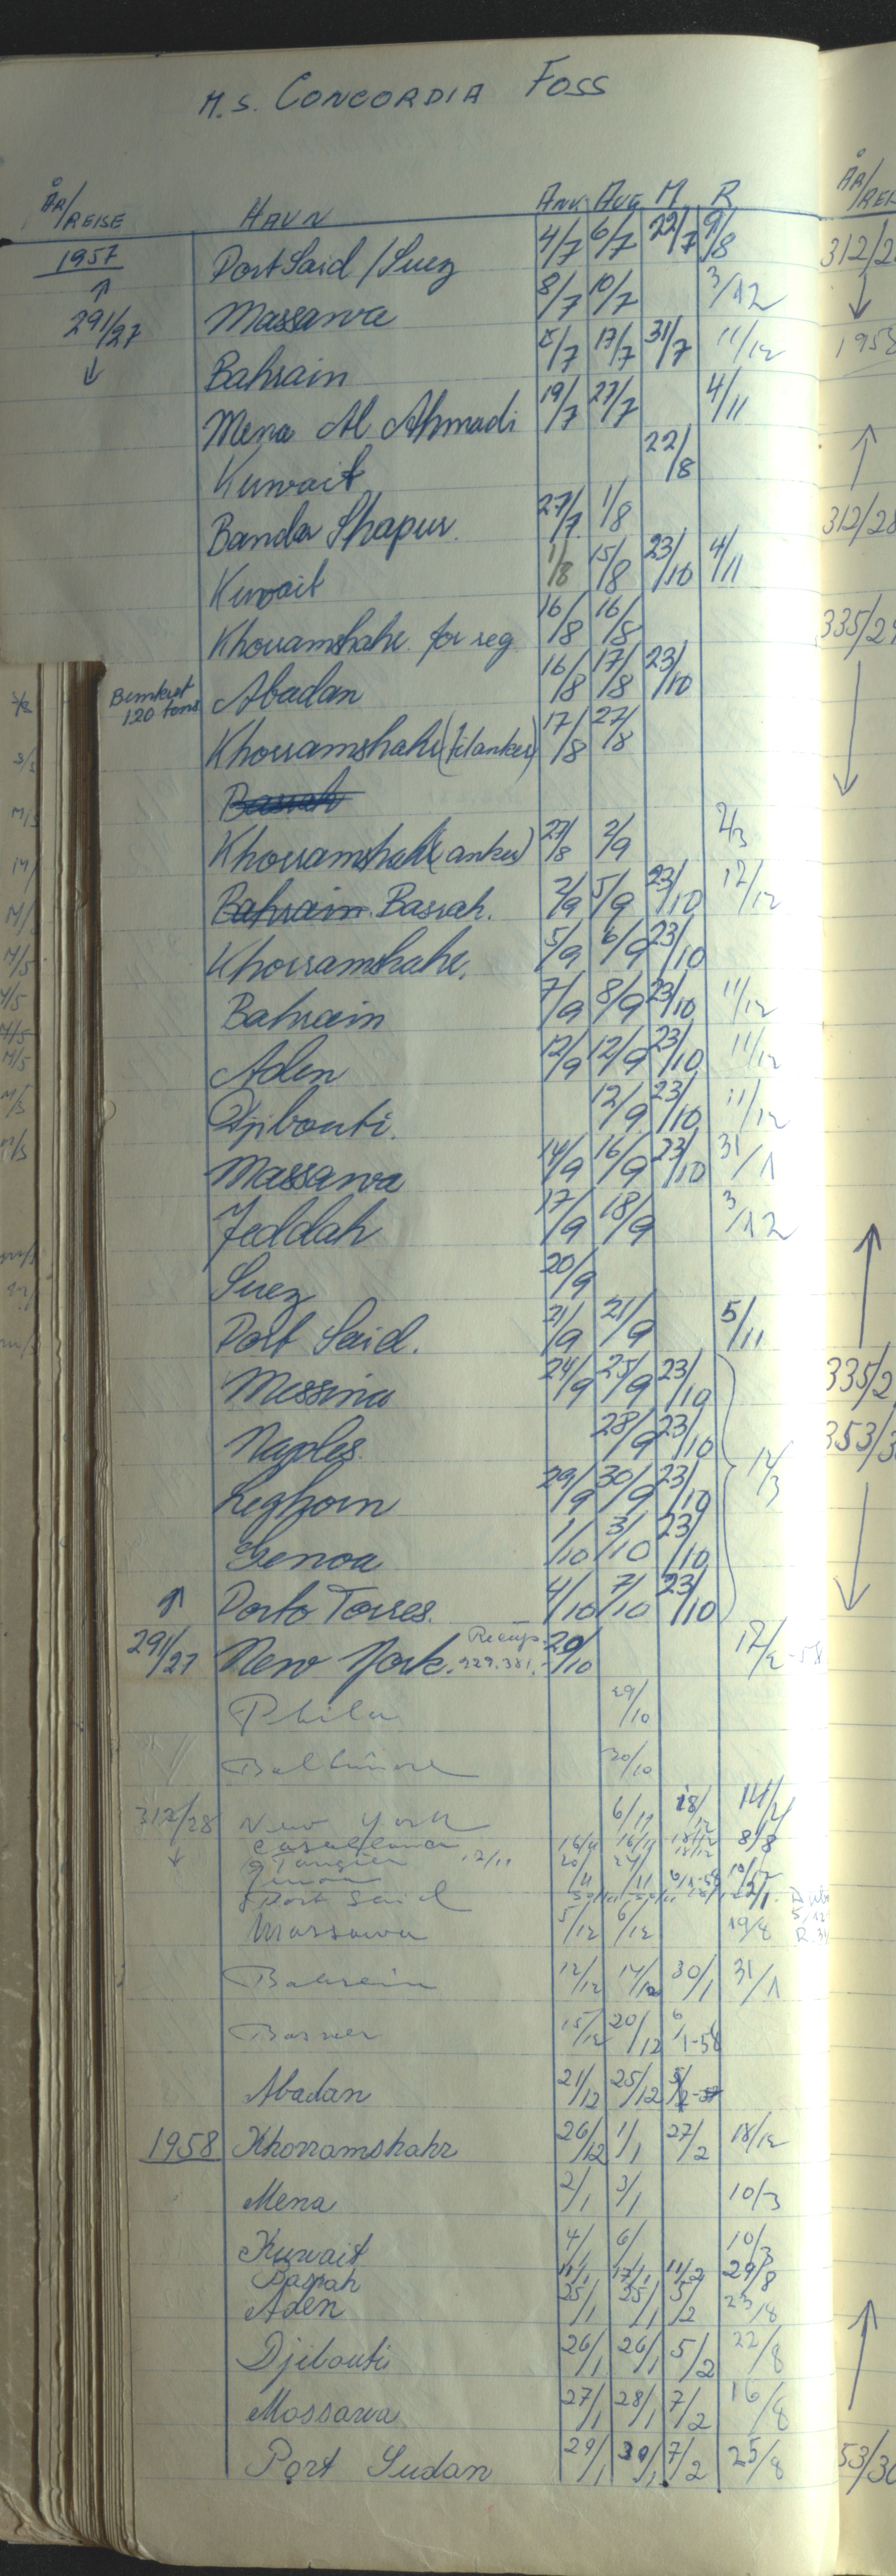 M.S. CONCORDIA FOSS
ÅR/REISE HAVN ANK. AVG. M. R
1957 Port Said / Suez 4/7 6/7 22/7 9/8
↑ Massawa 8/7 10/7 3/12
291/27 Bahrain 17/7 31/7 11/12
↓ Mena Al Ahmadi 19/7 27/7 4/11
Kuwait 22/8
Banda Shapur. 27/7 1/8
Kuwait 1/8 15/8 23/10 4/11
Khorramshahr. for reg 16/8 16/8
Bunkret 120 tons Abadan 16/8 17/8 23/10
Khorramshahr (til anker) 17/8 27/8
Basrah
Khorramshahr (anker) 27/8 2/9 2/3
Bahrain. Basrah. 2/9 5/9 23/10 12/12
Khorramshahr. 5/9 6/9 23/10
Bahrain 7/9 8/9 23/10 11/12
Aden 12/9 12/9 23/10 11/12
Djibouti. 12/9 23/10 11/12
Massawa 14/9 16/9 23/10 31/1
Jeddah 17/9 18/9 3/12
Suez 20/9
Port Said. 21/9 21/9 5/11
Messina 24/9 25/9 23/10
Naples. 28/9 23/10
Leghorn 29/9 30/9 23/10 14/3
Genoa 1/10 3/10 23/10
↑ Porto Torres. 4/10 7/10 23/10
291/27 New York. 229.381.- 20/10 17/2-58
Phila 29/10
Baltimore 30/10
312/28 New York 6/11 18/12 14/4
↓ Casablanca 16/11 16/11 18/12 8/8
Tangier 12/11 18/12
Genoa 20/11 24/11 6/1-58 10/12
Port Said 2/1.
Massawa 5/12 6/12 19/8
Bahrein 12/12 14/12 30/1 31/1
Basrah 15/12 20/12 6/1-58
Abadan 21/12 25/12 5/2
1958 Khorramshahr 26/12 1/1 27/2 18/12
Mena 2/1 3/1 10/3
Kuwait 4/1 6/1 10/3
Basrah 11/1 17/1 11/2 29/8
Aden 25/1 25/1 5/2 23/8
Djibouti 26/1 26/1 5/2 22/8
Massawa 27/1 28/1 7/2 16/8
Port Sudan 29/1 30/1 7/2 25/8
ÅR/REI
312/2
↓
1958
↑
312/28
335/29
↓
↑
335/2
353/3
↓
↑
53/30